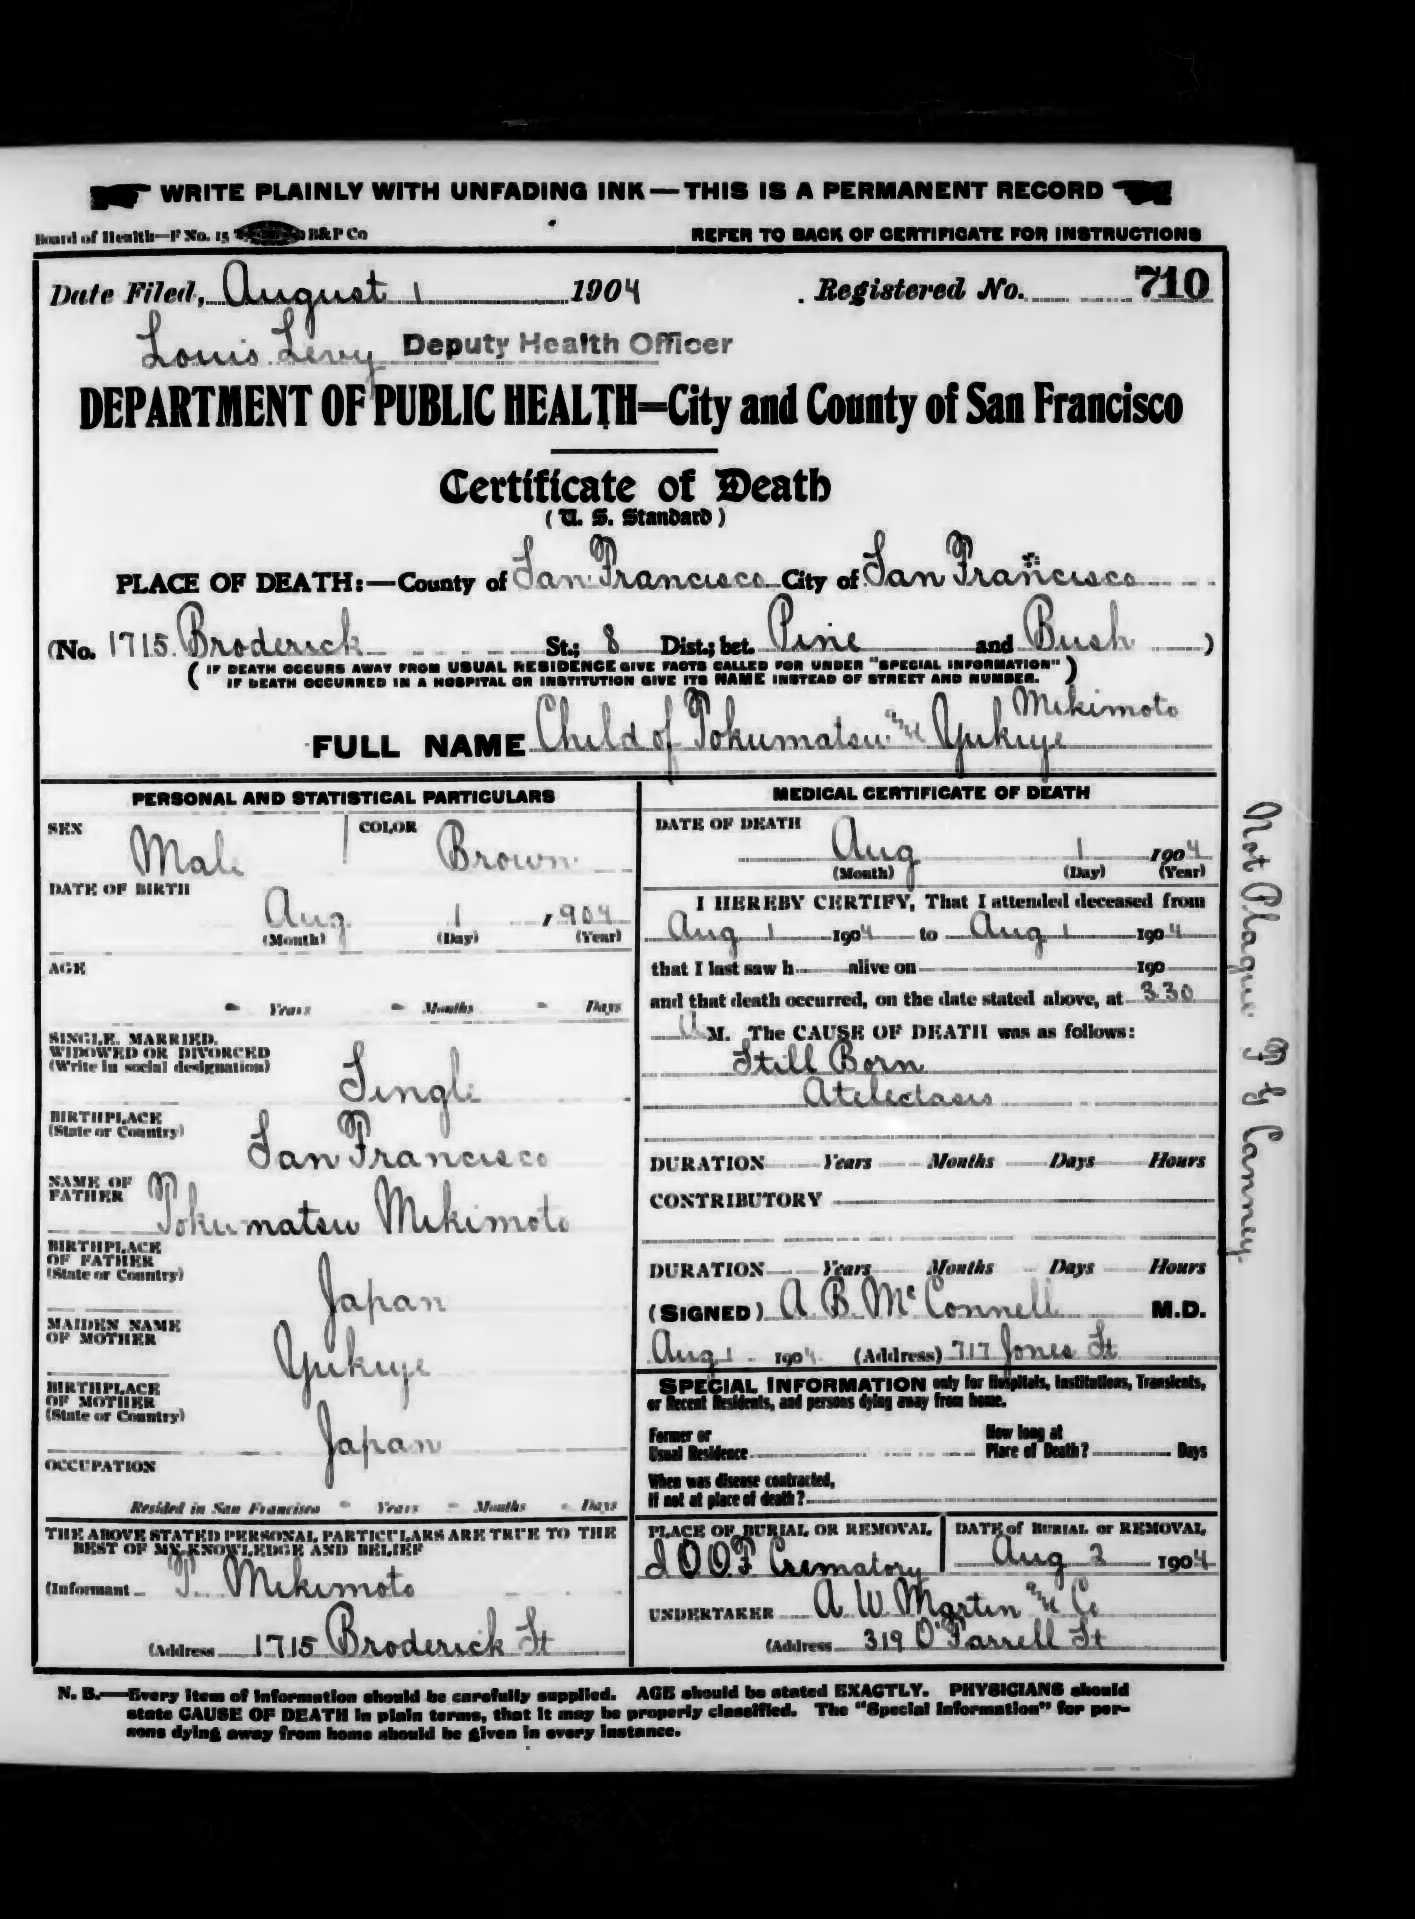 WRITE PLAINLY WITH UNFADING INK — THIS IS A PERMANENT RECORD
Board of Health—F No. 15 B&P Co REFER TO BACK OF CERTIFICATE FOR INSTRUCTIONS
Date Filed, August 1 1904 Registered No. 710
Louis Levy Deputy Health Officer
DEPARTMENT OF PUBLIC HEALTH—City and County of San Francisco
Certificate of Death
(U. S. Standard)
PLACE OF DEATH:—County of San Francisco City of San Francisco
(No. 1715 Broderick St.; 8 Dist.; bet. Pine and Bush )
( IF DEATH OCCURS AWAY FROM USUAL RESIDENCE GIVE FACTS CALLED FOR UNDER "SPECIAL INFORMATION" )
IF DEATH OCCURRED IN A HOSPITAL OR INSTITUTION GIVE ITS NAME INSTEAD OF STREET AND NUMBER.
FULL NAME Child of Tokumatsu and Yukuye Mikimoto
PERSONAL AND STATISTICAL PARTICULARS
SEX Male COLOR Brown
DATE OF BIRTH
Aug 1 , 904
(Month) (Day) (Year)
AGE
- Years - Months - Days
SINGLE, MARRIED,
WIDOWED OR DIVORCED
(Write in social designation)
Single
BIRTHPLACE
(State or Country)
San Francisco
NAME OF
FATHER
Tokumatsu Mikimoto
BIRTHPLACE
OF FATHER
(State or Country)
Japan
MAIDEN NAME
OF MOTHER
Yukuye
BIRTHPLACE
OF MOTHER
(State or Country)
Japan
OCCUPATION
Resided in San Francisco - Years - Months - Days
THE ABOVE STATED PERSONAL PARTICULARS ARE TRUE TO THE
BEST OF MY KNOWLEDGE AND BELIEF
(Informant T. Mikimoto
(Address 1715 Broderick St
MEDICAL CERTIFICATE OF DEATH
DATE OF DEATH
Aug 1 1904
(Month) (Day) (Year)
I HEREBY CERTIFY, That I attended deceased from
Aug 1 1904 to Aug 1 1904
that I last saw h alive on 190
and that death occurred, on the date stated above, at 3 30
A M. The CAUSE OF DEATH was as follows:
Still Born
Atelectasis
DURATION Years Months Days Hours
CONTRIBUTORY
DURATION Years Months Days Hours
(SIGNED) A B McConnell M.D.
Aug 1 1904 (Address) 717 Jones St
SPECIAL INFORMATION only for Hospitals, Institutions, Transients,
or Recent Residents, and persons dying away from home.
Former or
Usual Residence
How long at
Place of Death? Days
When was disease contracted,
If not at place of death?
PLACE OF BURIAL OR REMOVAL
I O O F Crematory
DATE of BURIAL or REMOVAL
Aug 2 1904
UNDERTAKER A W Martin and Co
(Address 319 O'Farrell St
N. B.—Every item of information should be carefully supplied. AGE should be stated EXACTLY. PHYSICIANS should
state CAUSE OF DEATH in plain terms, that it may be properly classified. The "Special Information" for per-
sons dying away from home should be given in every instance.
Not Plague Canney